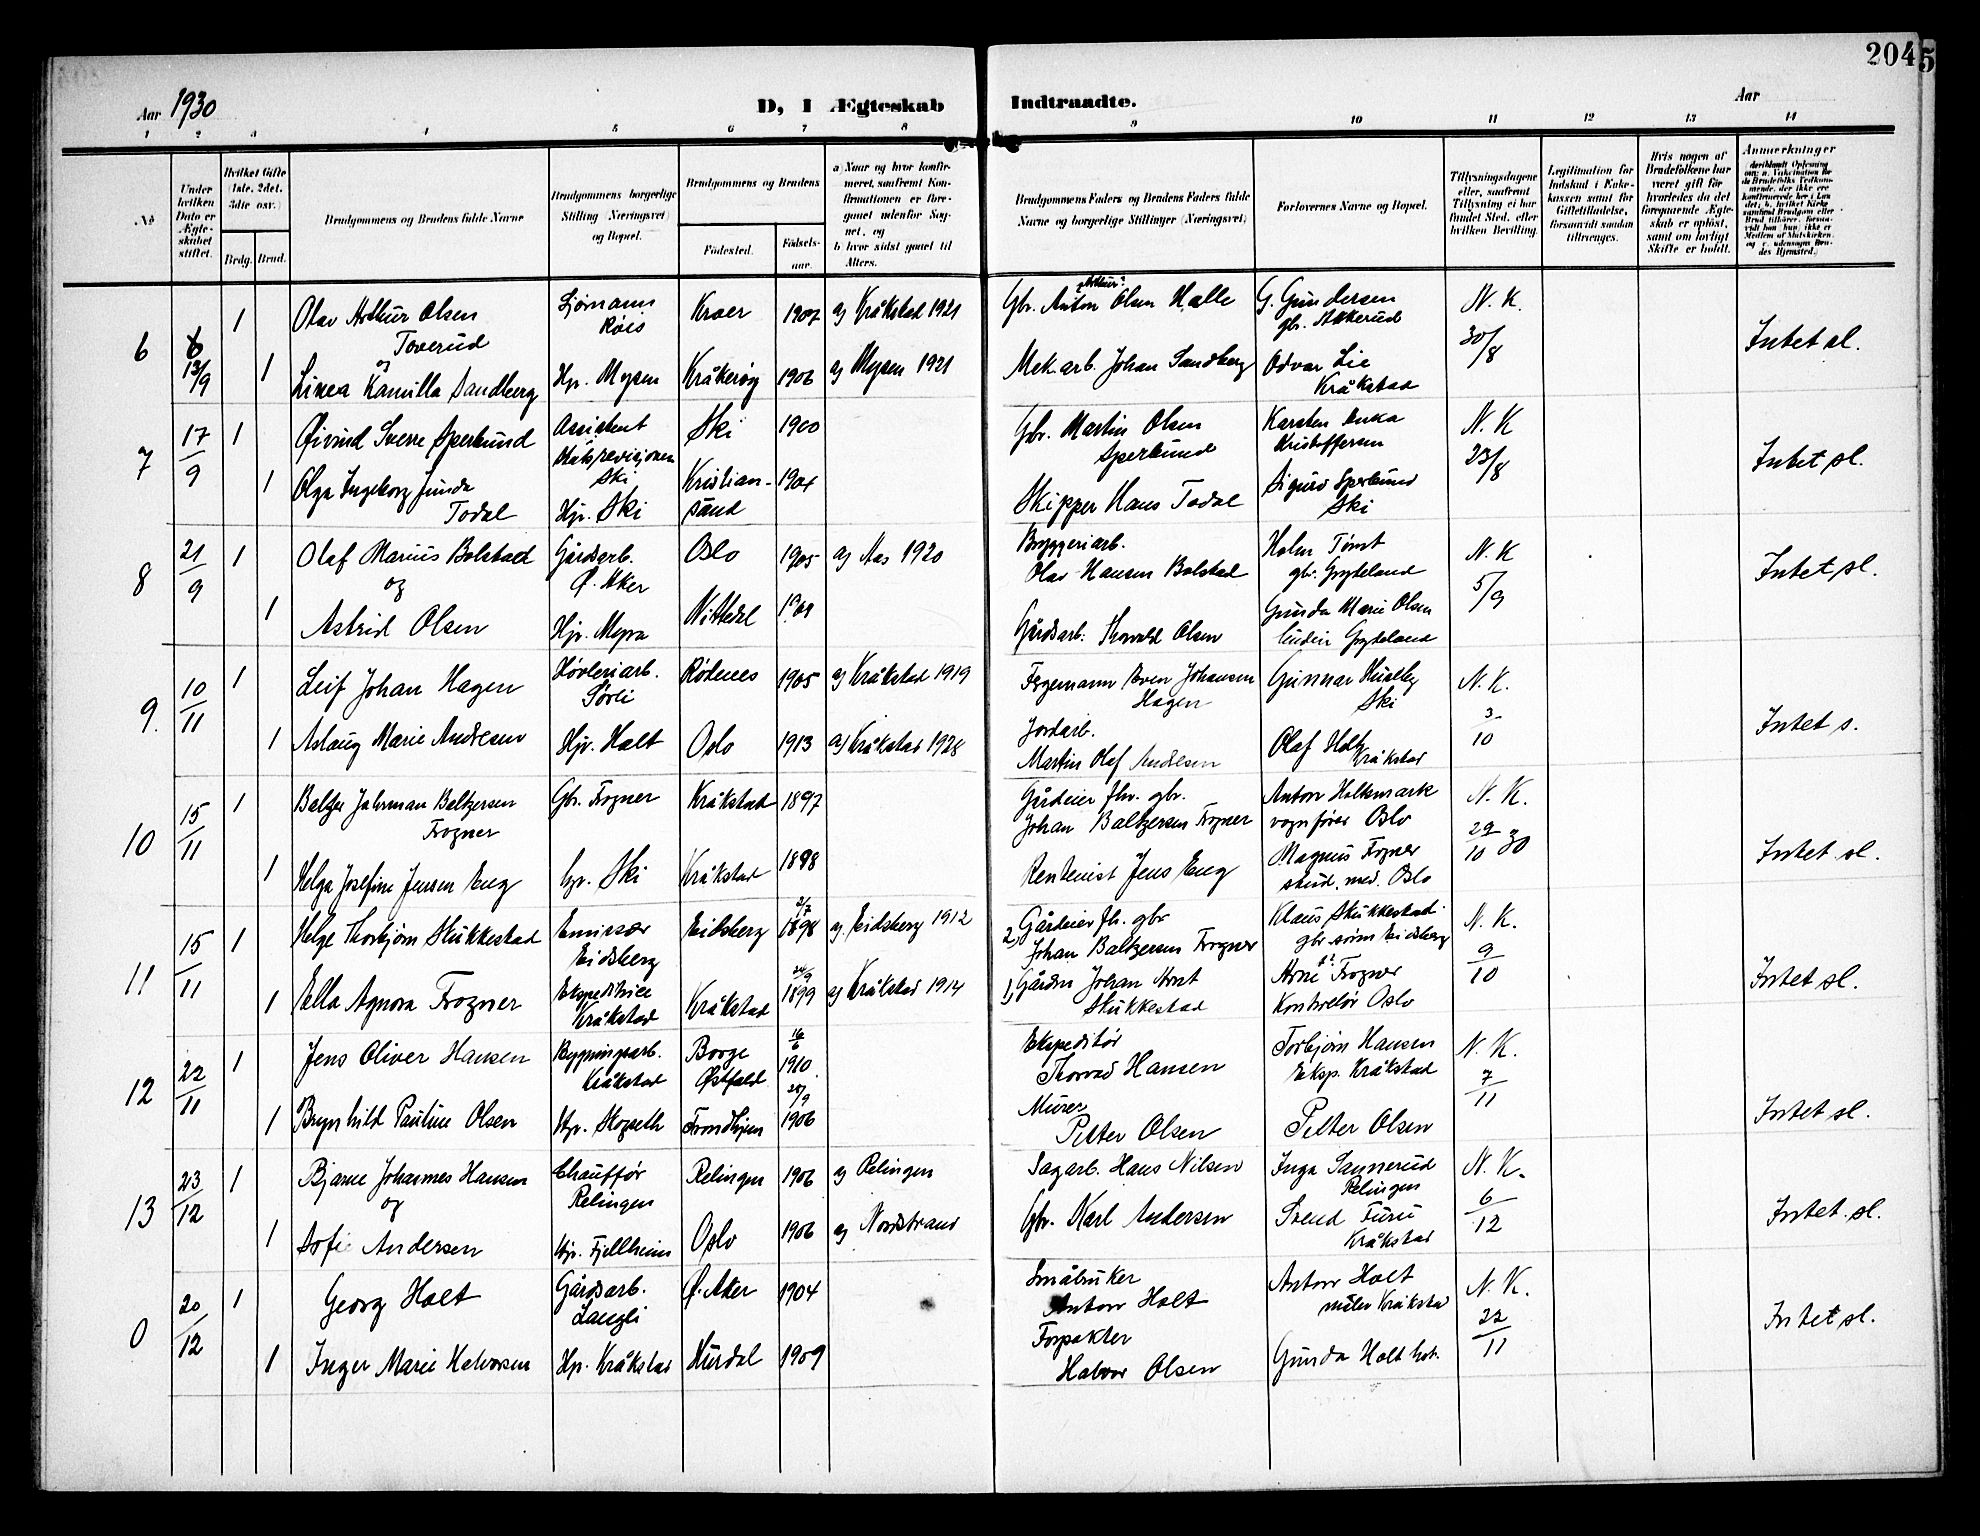 204
5
Aar 1930
D, I Ægteskab Indtraadte.
Aar
1 2 3 4 5 6 7 8 9 10 11 12 13 14
No
Under hvilken Dato er Ægteskabet stiftet.
Hvilket Gifte (1ste, 2det, 3die osv.)
Brdg. Brud.
Brudgommens og Brudens fulde Navne
Brudgommens borgerlige Stilling (Næringsvei) og Bopæl.
Brudgommens og Brudens
Fødested. Fødselsaar.
a) Naar og hvor konfirmeret, saafremt Konfirmationen er foregaaet udenfor Sognet, og
b) hvor sidst gaaet til Alters.
Brudgommens Faders og Brudens Faders fulde Navne og borgerlige Stillinger (Næringsvei)
Forlovernes Navne og Bopæl.
Tillysningsdagene eller, saafremt Tillysning ei har fundet Sted, efter hvilken Bevilling.
Legitimation for Indskud i Enkekassen samt for Giftetilladelse, forsaavidt saadan tiltrænges.
Hvis nogen af Brudefolkene har været gift før hvorledes da det foregaaende Ægteskab er opløst, samt om lovligt Skifte er holdt.
Anmerkninger
6 13/9 1 Olav Arthur Olsen Kroer 1907 a) Kråkstad 1921 Gbr. Anton Olsen Halle G. Gundersen N. K.
Toverud gbr. Akkerud 30/8 Intet sl.
og
1 Linea Kamilla Sandberg Hp. Mysen Kråkerøy 1906 a) Mysen 1921 Mek. arb. Johan Sandberg Odvar Lie
Kråkstad
7 17/9 1 Øivind Sverre Sperlund Assistent Ski 1900 Gbr. Martin Olsen Karsten N. K
Statsrevisjonen Ski Sperlund Kristoffersen 23/8 Intet sl.
1 Olga Ingeborg Junda Todal Hp. Ski Kristiansand 1904 Skipper Hans Todal Sigurd Sperlund Ski
8 21/9 1 Olaf Marius Bolstad Gårdsarb. Ø. Aker Oslo 1905 a) Aas 1920 Bryggeriarb. Olav Hansen Bolstad Holm N. K
og gbr. Gryteland 5/9 Intet sl.
1 Astrid Olsen Hp. Nittedal Gårdsarb. Thorvald Olsen Gunda Marie Olsen
Gryteland
9. 10/11 1 Leif Johan Hagen Høvleriarb. Rødenes 1905 a) Kråkstad 1919 Even Johansen Hagen Gunnar Huseby Ski N. K.
3/10 Intet s.
1 Aslaug Marie Andresen Hp. Holt Oslo 1913 a) Kråkstad 1928 Jordarb. Martin Olaf Andresen Olaf Holt Kråkstad
10 15/11 1 Baltzersen Frogner Gbr. Frogner Kråkstad 1897 Gårdeier fhv. gbr. Johan Baltzersen Frogner Anton vognfører Oslo N. K.
29/10 30 Intet sl.
1 Helga Josefine Jensen Eng hp. Ski Kråkstad 1898 Rentenist Jens Eng Magnus Frogner stud. med. Oslo
11 15/11 1 Helge Thorbjørn Slukkestad Emissær Eidsberg Eidsberg 2/7 1898 a) Eidsberg 1912 2, Gårdeier fh. gbr Johan Baltzersen Frogner Klaus Slukkestad gbr. sønn Eidsberg N. K.
9/10 Intet sl.
1 Ella Agnora Frogner Ekspeditrice Kråkstad Kråkstad 24/9 1899 a) Kråkstad 1914 1, Gårdm Johan Arnt Slukkestad Arne Frogner Kontrolør Oslo
12 22/11 1 Jens Oliver Hansen Bygningsarb. Kråkstad Borge Østfold 16/6 1910. Ekspeditør Thorvald Hansen Torbjørn Hansen Eksp. Kråkstad N. K.
7/11 Intet sl.
1 Brynhild Pauline Olsen Hp. Skogseth Trondhjem 28/9 1906 Murer Petter Olsen Petter Olsen
13 23/12 1 Bjarne Johannes Hansen Chauffør Relingen Relingen 1906 a) Relingen Sagarb. Hans Nilsen Inga Sannerud Relingen N. K.
og 6/12 Intet. sl.
1 Sofie Andersen Hp. Fjellheim Oslo 1906 a) Nordstrand Gbr. Karl Andersen Svend Furu Kråkstad
0 20/12 1 Georg Holt Gårdsarb. Langli Ø. Aker 1904 Småbruker Anton Holt Anton Holt Kråkstad N. K.
22/11 Intet sl.
1 Inger Marie Halvorsen Hp. Kråkstad Hurdal 1909 Forpakter Halvor Olsen Gunda Holt